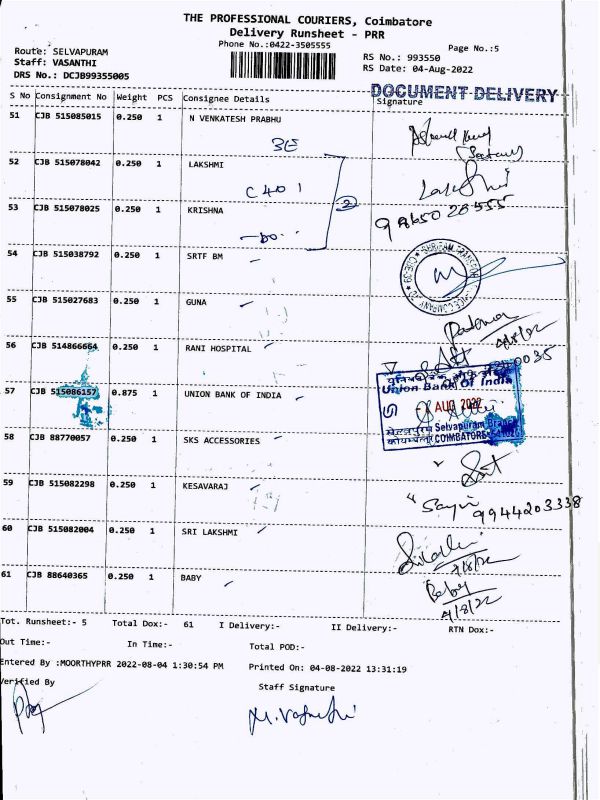 THE PROFESSIONAL COURIERS, Coimbatore
Delivery Runsheet - PRR
Phone No.:0422-3505555
Page No.:5
Route: SELVAPURAM
RS No.: 993550
Staff: VASANTHI
RS Date: 04-Aug-2022
DRS No.: DCJB99355005
DOCUMENT DELIVERY
S No Consignment No Weight PCS Consignee Details Signature
51 CJB 515085015 0.250 1 N VENKATESH PRABHU
3E
52 CJB 515078042 0.250 1 LAKSHMI
C 401
53 CJB 515078025 0.250 1 KRISHNA
-Do-
54 CJB 515038792 0.250 1 SRTF BM
55 CJB 515027683 0.250 1 GUNA
56 CJB 514866664 0.250 1 RANI HOSPITAL
57 CJB 515086157 0.875 1 UNION BANK OF INDIA
Union Bank Of India
AUG 2022
Selvapuram Branch
COIMBATORE
58 CJB 88770057 0.250 1 SKS ACCESSORIES
59 CJB 515082298 0.250 1 KESAVARAJ
9944203338
60 CJB 515082004 0.250 1 SRI LAKSHMI
4/8/22
61 CJB 88640365 0.250 1 BABY
Baby
4/8/22
Tot. Runsheet:- 5 Total Dox:- 61 I Delivery:- II Delivery:- RTN Dox:-
Out Time:- In Time:- Total POD:-
Entered By :MOORTHYPRR 2022-08-04 1:30:54 PM Printed On: 04-08-2022 13:31:19
Verified By
Staff Signature